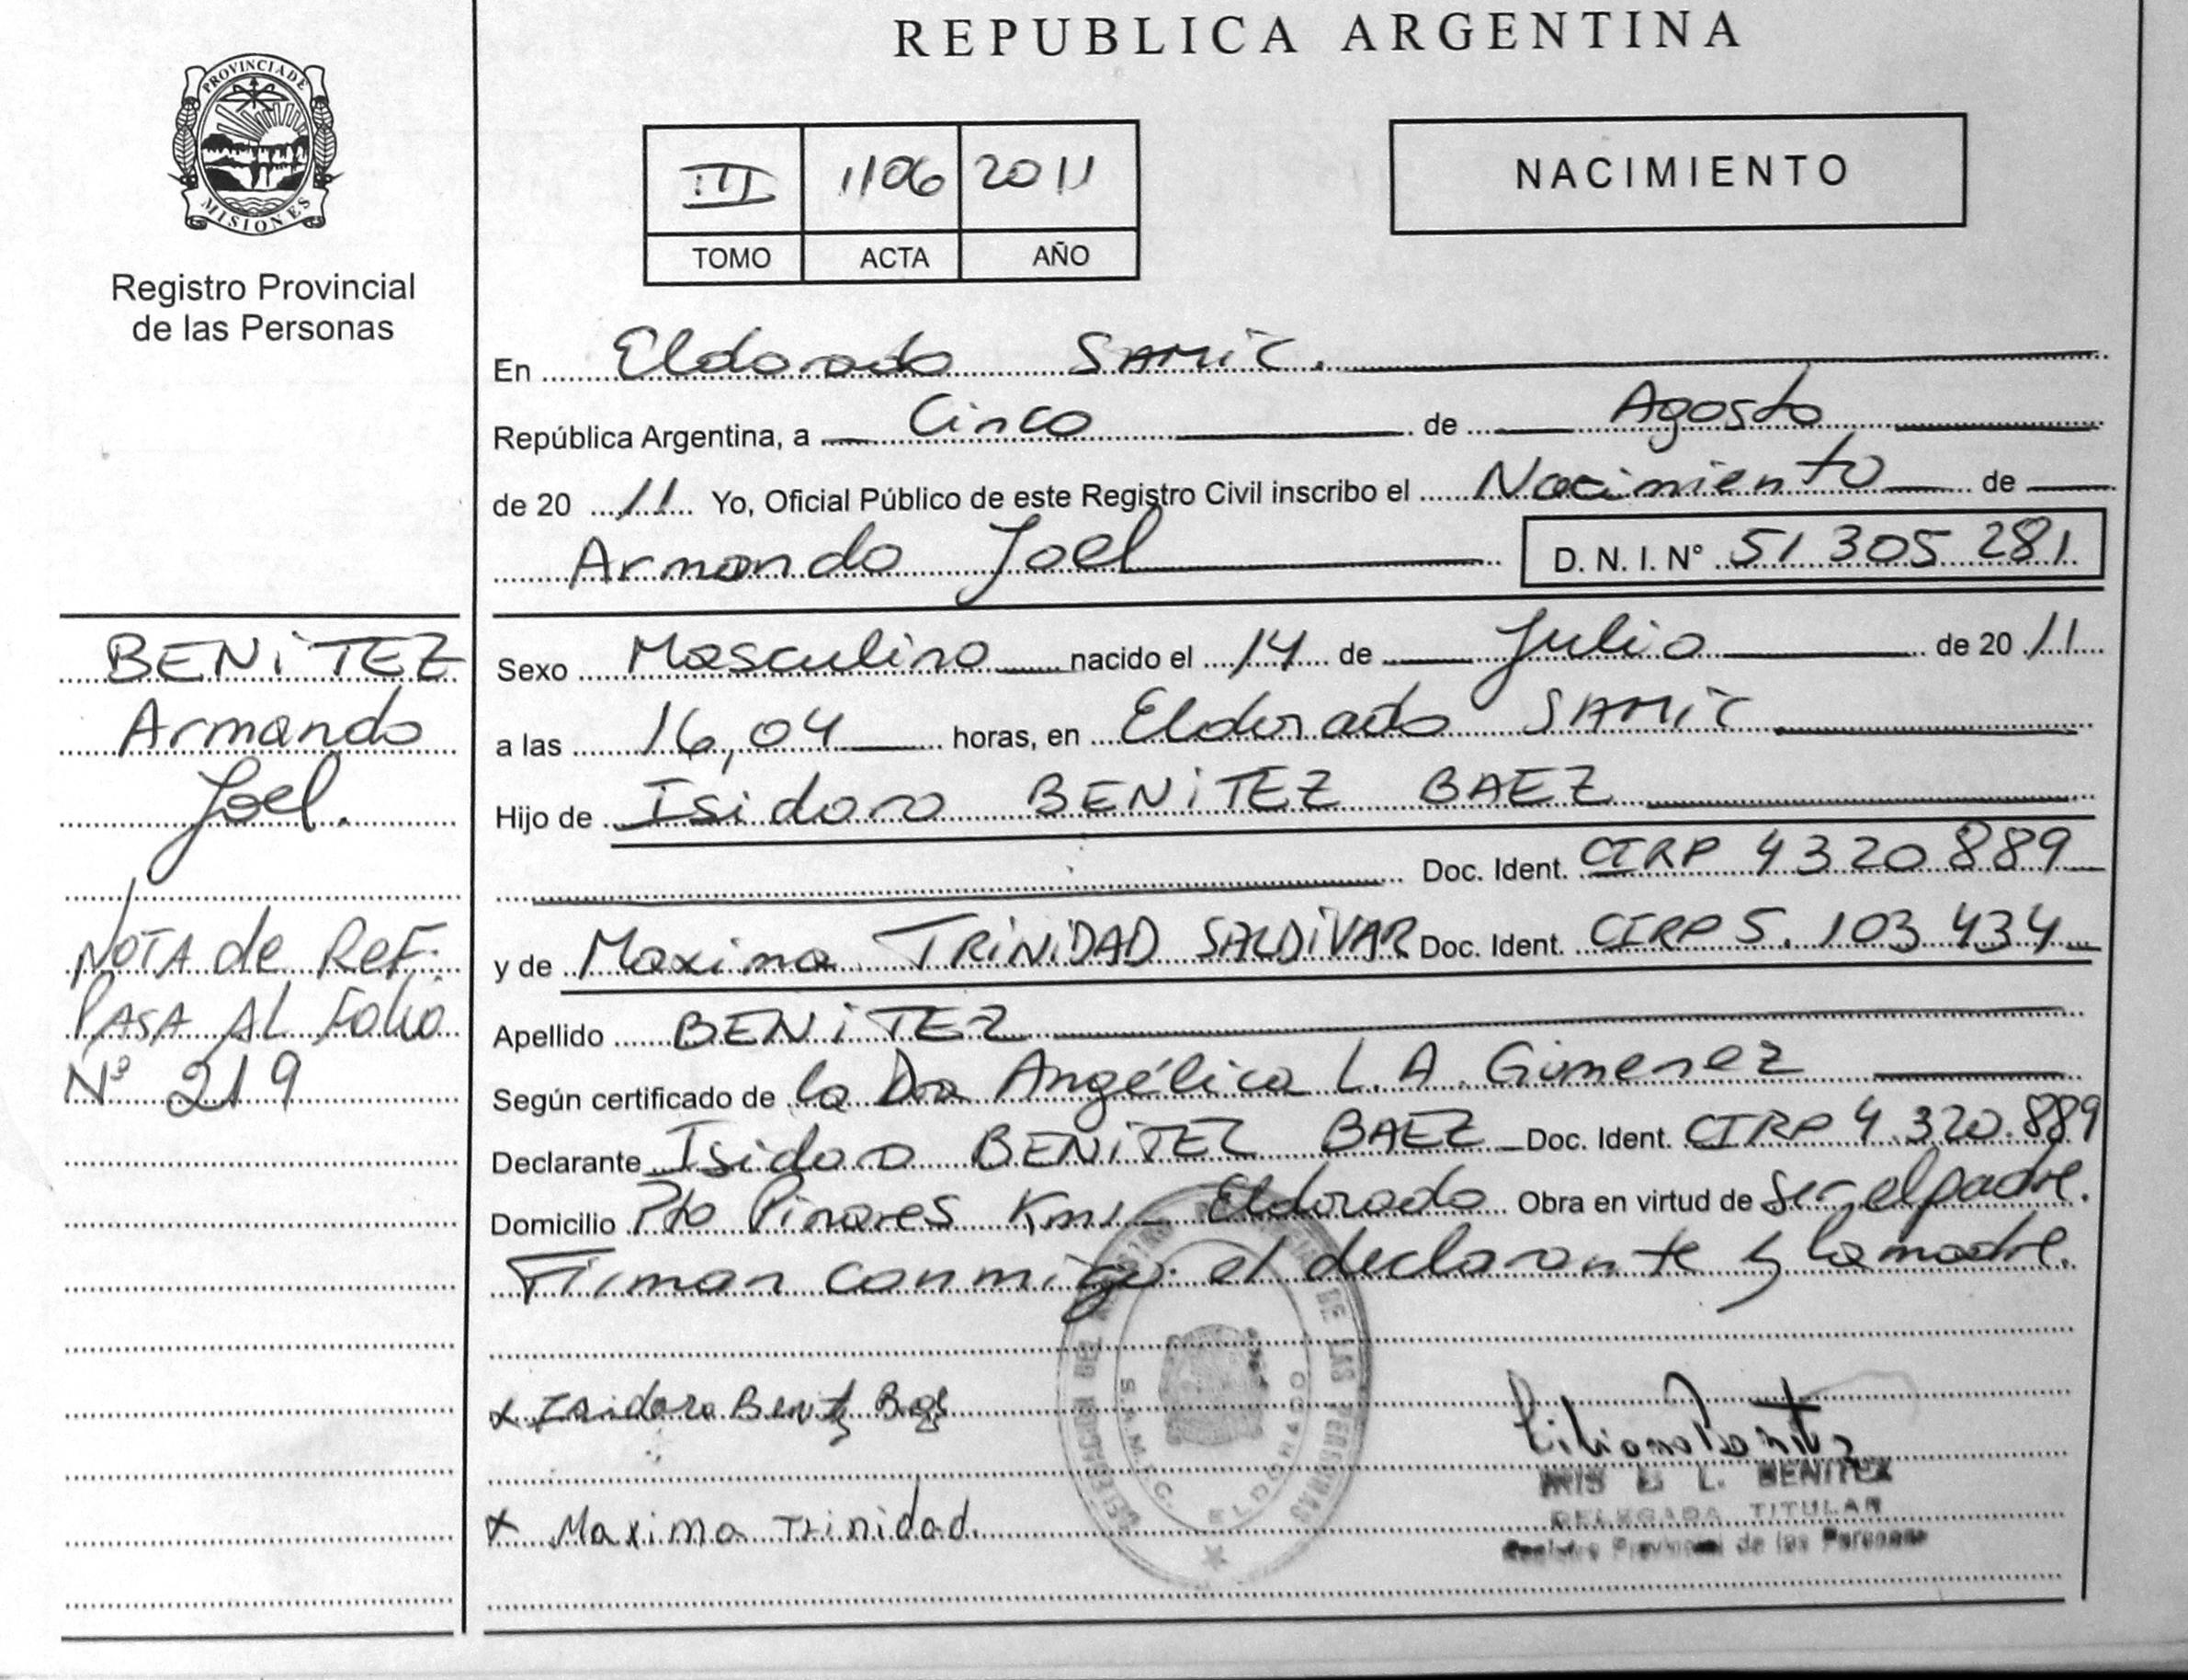 REPUBLICA ARGENTINA
PROVINCIA DE
MISIONES
Registro Provincial
de las Personas
III 1106 2011
TOMO ACTA AÑO
NACIMIENTO
En Eldorado SAMIC.
República Argentina, a Cinco de Agosto
de 20 11 Yo, Oficial Público de este Registro Civil inscribo el Nacimiento de
Armando Joel D. N. I. N° 51 305 281
BENITEZ
Armando
Joel.
NOTA de REF.
PASA AL Folio
N° 219
Sexo Masculino nacido el 14 de Julio de 20 11
a las 16,04 horas, en Eldorado SAMIC
Hijo de Isidoro BENITEZ BAEZ
Doc. Ident. CIRP 4320889
y de Maxima TRINIDAD SALDIVAR Doc. Ident. CIRP 5.103 434
Apellido BENITEZ
Según certificado de la Dra Angélica L.A. Gimenez
Declarante Isidoro BENITEZ BAEZ Doc. Ident. CIRP 4.320.889
Domicilio Pto Pinares Km 1 Eldorado Obra en virtud de ser el padre.
Firman conmigo el declarante y la madre.
x Isidoro Benitez Baez
x Maxima Trinidad
S.A.M.I.C. ELDORADO
DE LAS PERSONAS
L. BENITEZ
DELEGADA TITULAR
Registro Provincial de las Personas